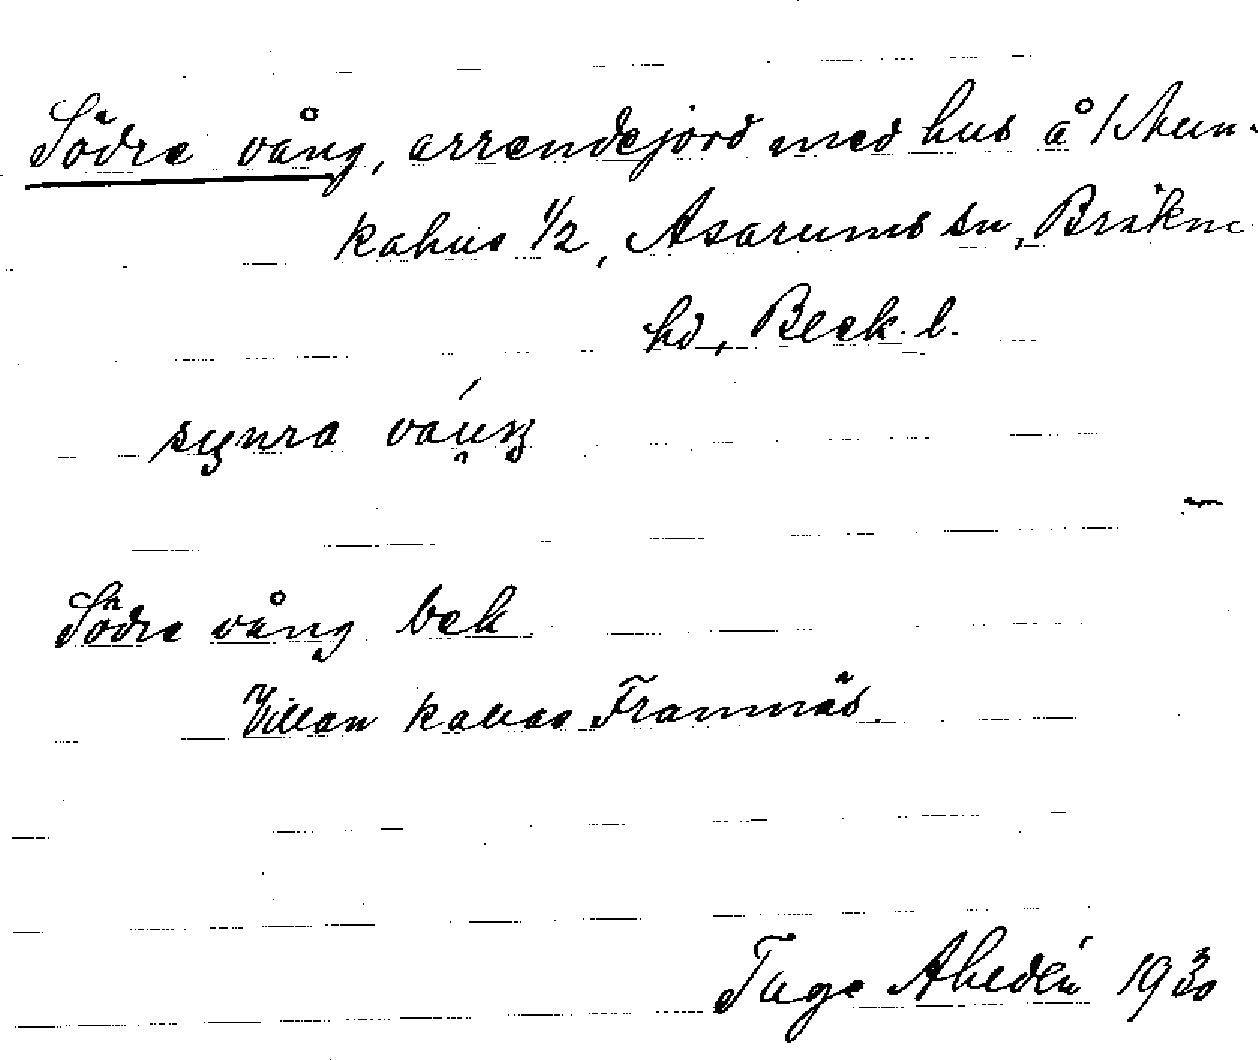 Södre vång, arrendejord med hus å Mun-
kahus 1/2, Asarums sn, Bräkne
hd, Blek. l.
Södre vång bek
Villan kallas Framnäs.
Tage Ahldén 1930